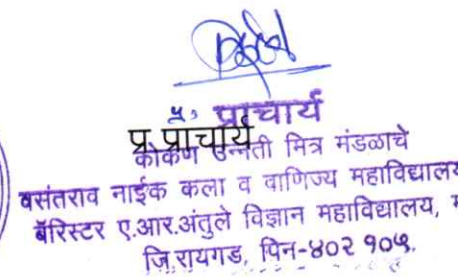 प्र. प्राचार्य
प्र. प्राचार्य
कोकण उन्नती मित्र मंडळाचे
वसंतराव नाईक कला व वाणिज्य महाविद्यालय
बॅरिस्टर ए.आर.अंतुले विज्ञान महाविद्यालय,
जि.रायगड, पिन-४०२ १०५.